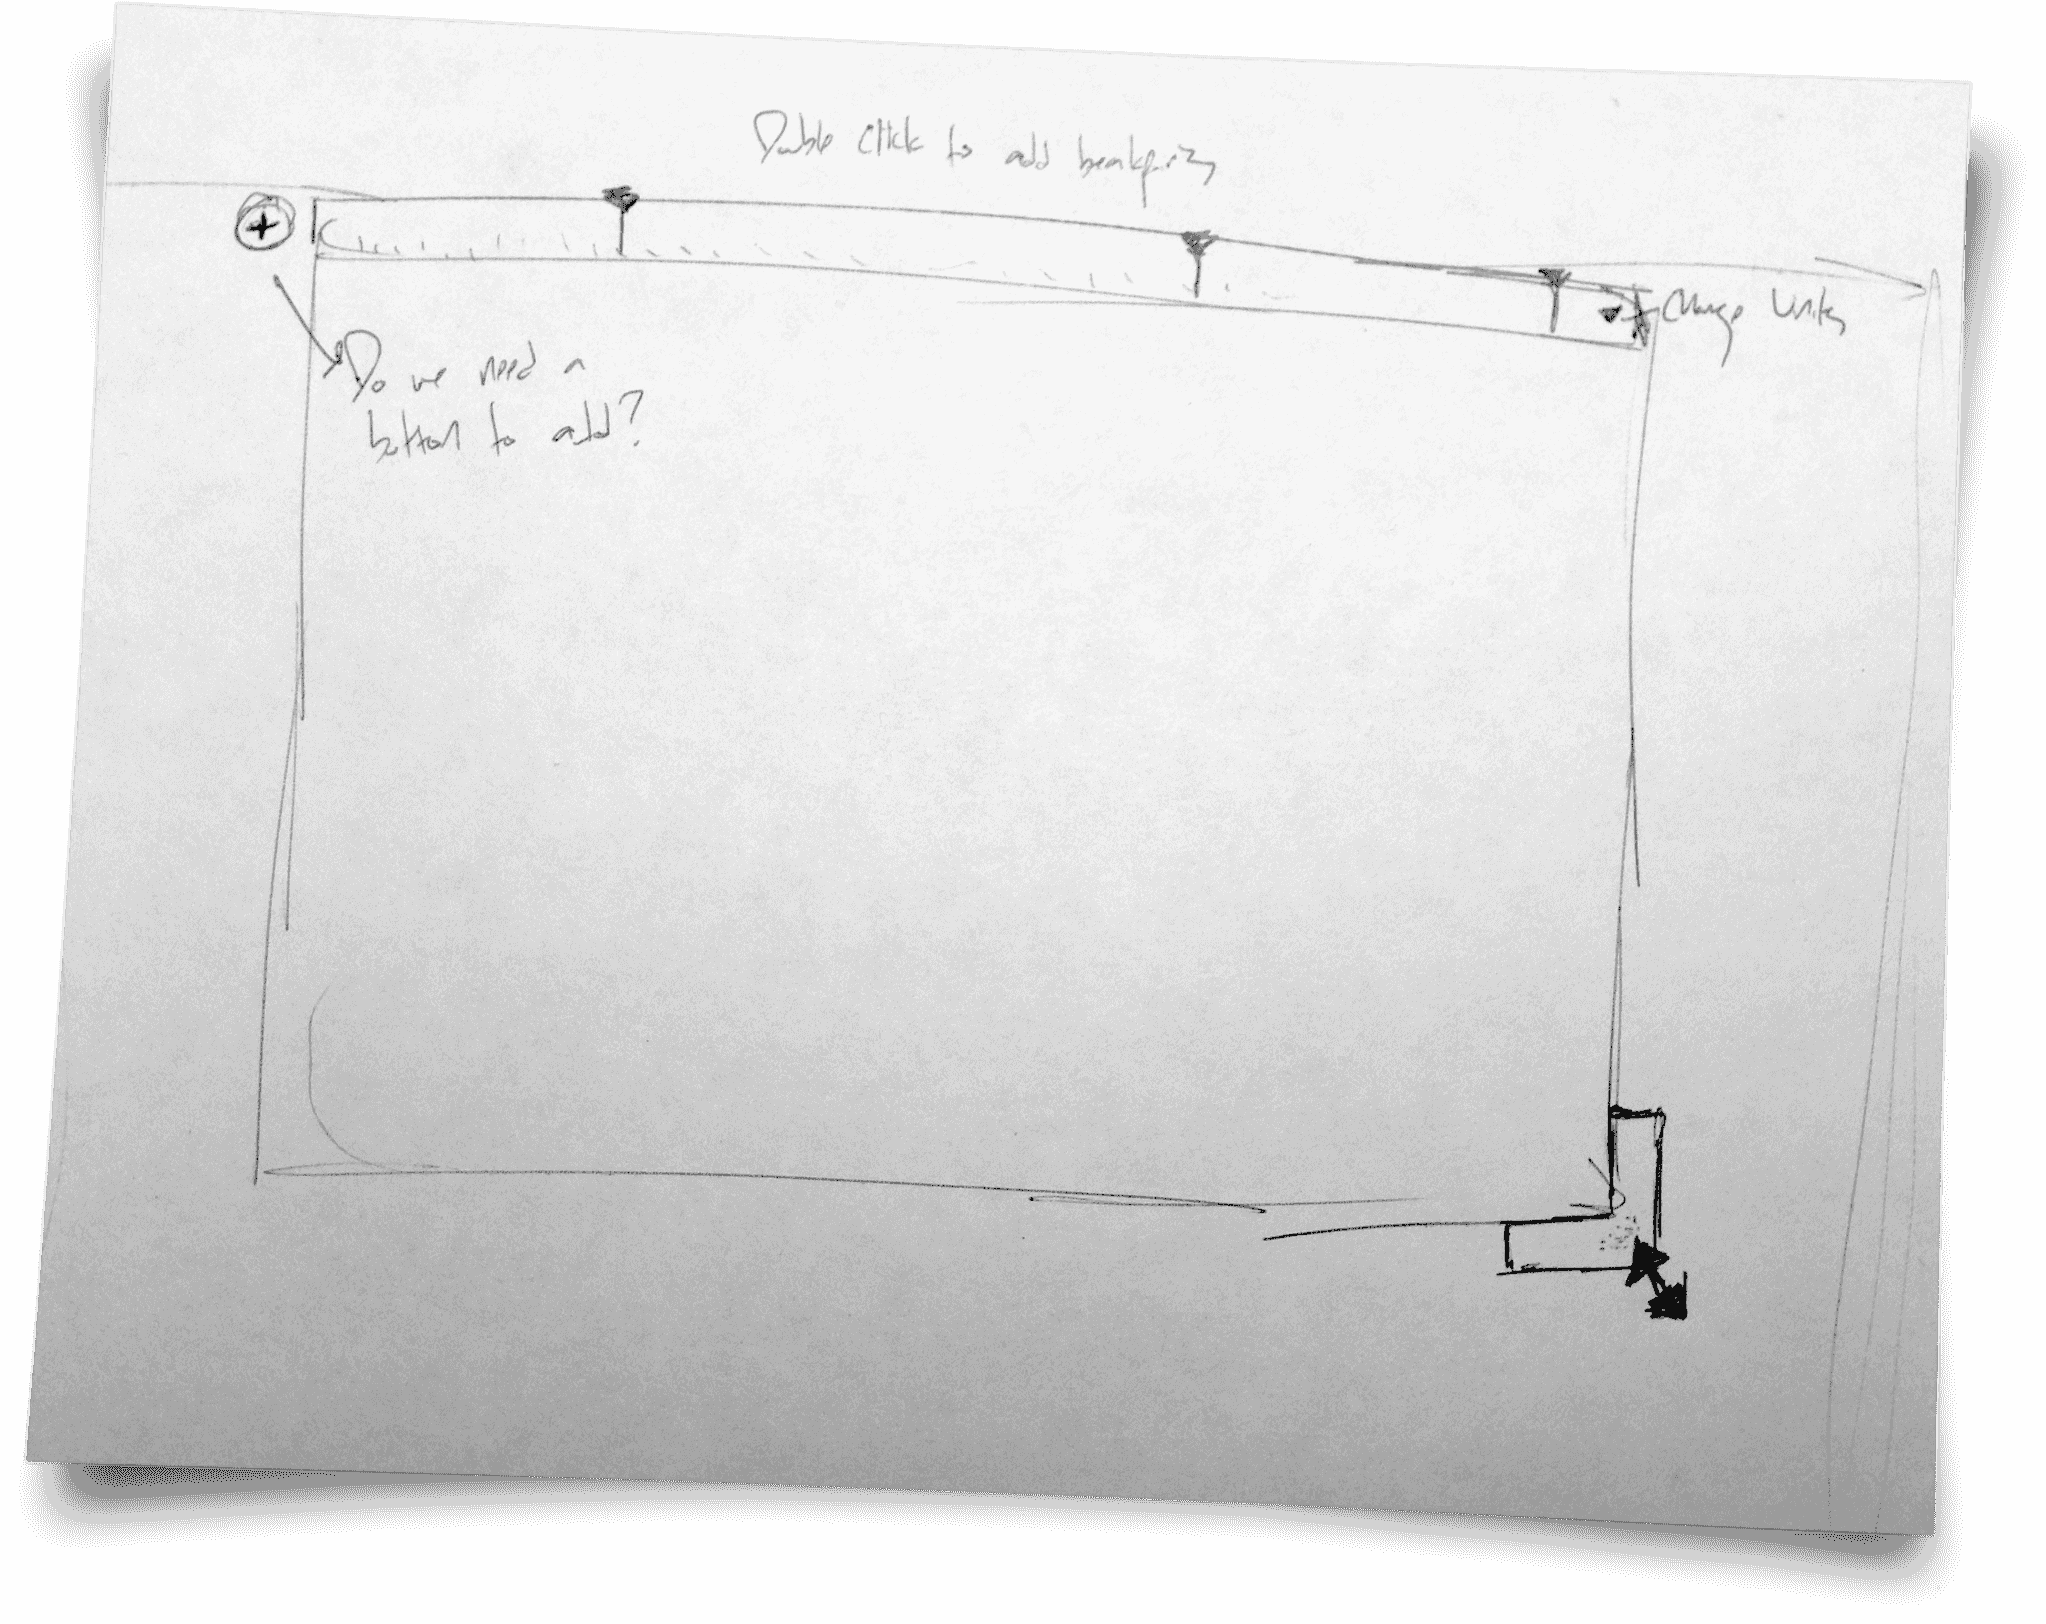 Double Click to add breakpoints
Change Units
Do we need a
button to add?